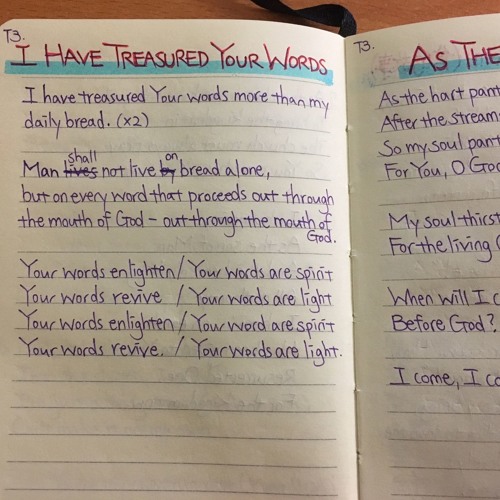 T3.
I HAVE TREASURED YOUR WORDS
I have treasured Your words more than my
daily bread. (x2)
shall on
Man lives not live by bread alone,
but on every word that proceeds out through
the mouth of God - out through the mouth of
God.
Your words enlighten / Your words are spirit
Your words revive / Your words are light
Your words enlighten / Your word are spirit
Your words revive. / Your words are light.
T3.
AS THE
As the hart pant
After the stream
So my soul pant
For You, O God
My soul thirst
For the living
When will I c
Before God?
I come, I co